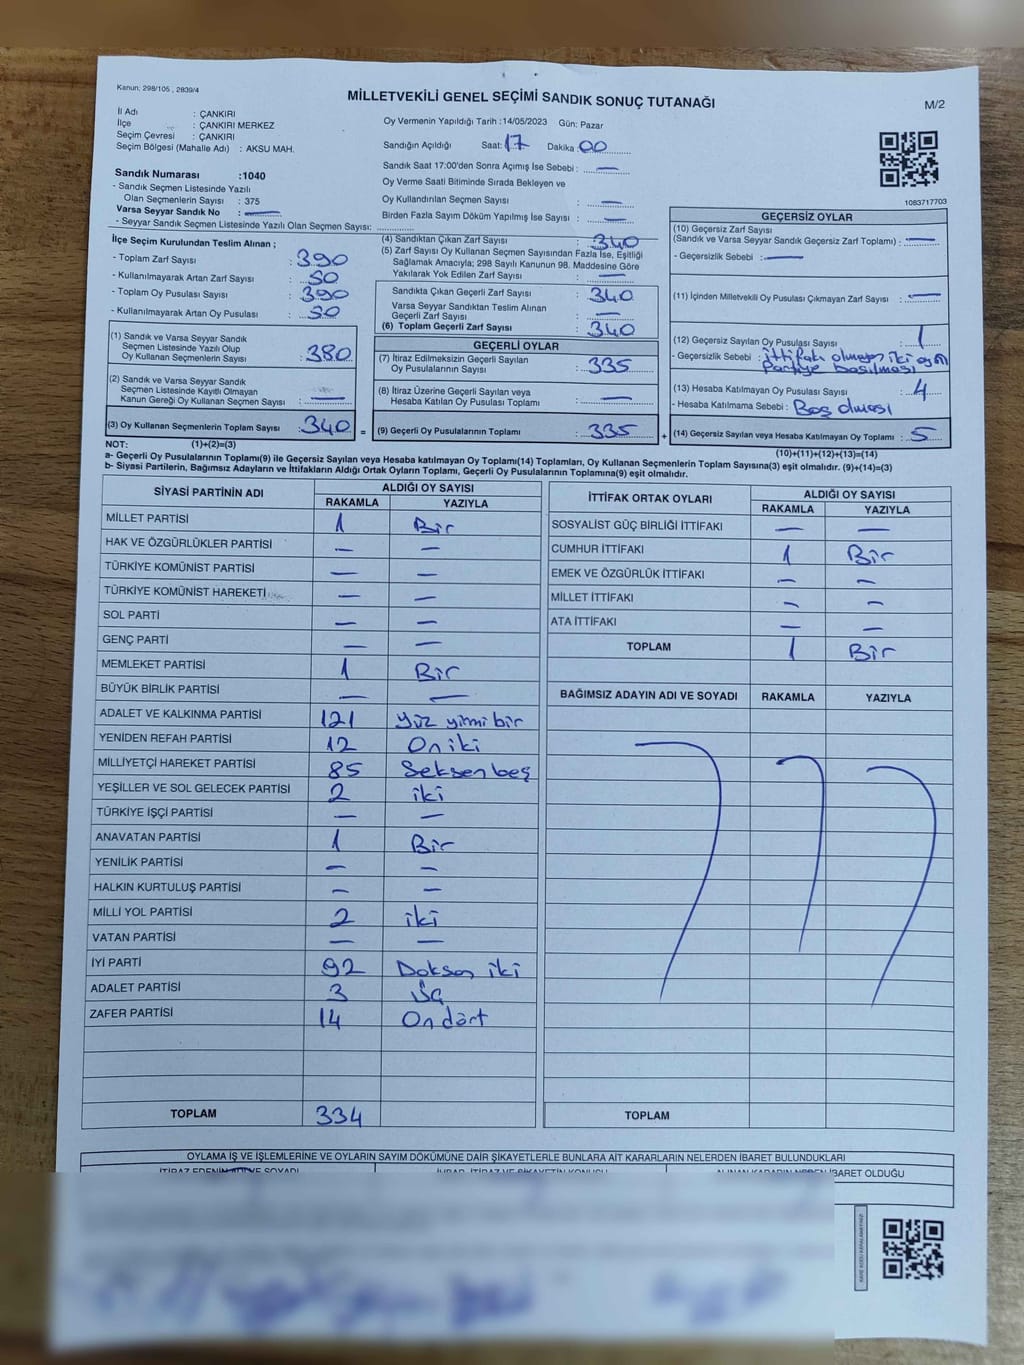 Kanun: 298/105 , 2839/4
MİLLETVEKİLİ GENEL SEÇİMİ SANDIK SONUÇ TUTANAĞI
M/2
İl Adı : ÇANKIRI
İlçe : ÇANKIRI MERKEZ
Seçim Çevresi : ÇANKIRI
Seçim Bölgesi (Mahalle Adı) : AKSU MAH.
Sandık Numarası :1040
- Sandık Seçmen Listesinde Yazılı
Olan Seçmenlerin Sayısı : 375
Varsa Seyyar Sandık No : —
- Seyyar Sandık Seçmen Listesinde Yazılı Olan Seçmen Sayısı:
Oy Vermenin Yapıldığı Tarih :14/05/2023 Gün: Pazar
Sandığın Açıldığı Saat: 17 Dakika 00
Sandık Saat 17:00'den Sonra Açımış İse Sebebi : —
Oy Verme Saati Bitiminde Sırada Bekleyen ve
Oy Kullandırılan Seçmen Sayısı : —
Birden Fazla Sayım Döküm Yapılmış İse Sayısı : —
1083717703
İlçe Seçim Kurulundan Teslim Alınan ;
- Toplam Zarf Sayısı : 390
- Kullanılmayarak Artan Zarf Sayısı : 50
- Toplam Oy Pusulası Sayısı : 390
- Kullanılmayarak Artan Oy Pusulası : 50
(1) Sandık ve Varsa Seyyar Sandık
Seçmen Listesinde Yazılı Olup
Oy Kullanan Seçmenlerin Sayısı : 380
(2) Sandık ve Varsa Seyyar Sandık
Seçmen Listesinde Kayıtlı Olmayan
Kanun Gereği Oy Kullanan Seçmen Sayısı : —
(3) Oy Kullanan Seçmenlerin Toplam Sayısı : 340 =
(4) Sandıktan Çıkan Zarf Sayısı : 340
(5) Zarf Sayısı Oy Kullanan Seçmen Sayısından Fazla İse, Eşitliği
Sağlamak Amacıyla; 298 Sayılı Kanunun 98. Maddesine Göre
Yakılarak Yok Edilen Zarf Sayısı : —
Sandıkta Çıkan Geçerli Zarf Sayısı : 340
Varsa Seyyar Sandıktan Teslim Alınan
Geçerli Zarf Sayısı : —
(6) Toplam Geçerli Zarf Sayısı : 340
GEÇERLİ OYLAR
(7) İtiraz Edilmeksizin Geçerli Sayılan
Oy Pusulalarının Sayısı : 335
(8) İtiraz Üzerine Geçerli Sayılan veya
Hesaba Katılan Oy Pusulası Toplamı : —
(9) Geçerli Oy Pusulalarının Toplamı : 335 +
GEÇERSİZ OYLAR
(10) Geçersiz Zarf Sayısı
(Sandık ve Varsa Seyyar Sandık Geçersiz Zarf Toplamı) : —
- Geçersizlik Sebebi : —
(11) İçinden Milletvekili Oy Pusulası Çıkmayan Zarf Sayısı : —
(12) Geçersiz Sayılan Oy Pusulası Sayısı : 1
- Geçersizlik Sebebi : İttifakı olmayan iki ayrı
Partiye basılması
(13) Hesaba Katılmayan Oy Pusulası Sayısı : 4
- Hesaba Katılmama Sebebi : Boş olması
(14) Geçersiz Sayılan veya Hesaba Katılmayan Oy Toplamı : 5
NOT: (1)+(2)=(3)
(10)+(11)+(12)+(13)=(14)
a- Geçerli Oy Pusulalarının Toplamı(9) ile Geçersiz Sayılan veya Hesaba katılmayan Oy Toplamı(14) Toplamları, Oy Kullanan Seçmenlerin Toplam Sayısına(3) eşit olmalıdır. (9)+(14)=(3)
b- Siyasi Partilerin, Bağımsız Adayların ve İttifakların Aldığı Ortak Oyların Toplamı, Geçerli Oy Pusulalarının Toplamına(9) eşit olmalıdır.
SİYASİ PARTİNİN ADI ALDIĞI OY SAYISI
RAKAMLA YAZIYLA
MİLLET PARTİSİ 1 Bir
HAK VE ÖZGÜRLÜKLER PARTİSİ — —
TÜRKİYE KOMÜNİST PARTİSİ — —
TÜRKİYE KOMÜNİST HAREKETİ — —
SOL PARTİ — —
GENÇ PARTİ — —
MEMLEKET PARTİSİ 1 Bir
BÜYÜK BİRLİK PARTİSİ — —
ADALET VE KALKINMA PARTİSİ 121 Yüz yirmi bir
YENİDEN REFAH PARTİSİ 12 On iki
MİLLİYETÇİ HAREKET PARTİSİ 85 Seksen beş
YEŞİLLER VE SOL GELECEK PARTİSİ 2 iki
TÜRKİYE İŞÇİ PARTİSİ — —
ANAVATAN PARTİSİ 1 Bir
YENİLİK PARTİSİ — —
HALKIN KURTULUŞ PARTİSİ — —
MİLLİ YOL PARTİSİ 2 iki
VATAN PARTİSİ — —
İYİ PARTİ 92 Doksan iki
ADALET PARTİSİ 3 Üç
ZAFER PARTİSİ 14 On dört
TOPLAM 334
İTTİFAK ORTAK OYLARI ALDIĞI OY SAYISI
RAKAMLA YAZIYLA
SOSYALİST GÜÇ BİRLİĞİ İTTİFAKI — —
CUMHUR İTTİFAKI 1 Bir
EMEK VE ÖZGÜRLÜK İTTİFAKI — —
MİLLET İTTİFAKI — —
ATA İTTİFAKI — —
TOPLAM 1 Bir
BAĞIMSIZ ADAYIN ADI VE SOYADI RAKAMLA YAZIYLA
TOPLAM
OYLAMA İŞ VE İŞLEMLERİNE VE OYLARIN SAYIM DÖKÜMÜNE DAİR ŞİKAYETLERLE BUNLARA AİT KARARLARIN NELERDEN İBARET BULUNDUKLARI
İTİRAZ EDENİN ADI VE SOYADI
İBARET OLDUĞU